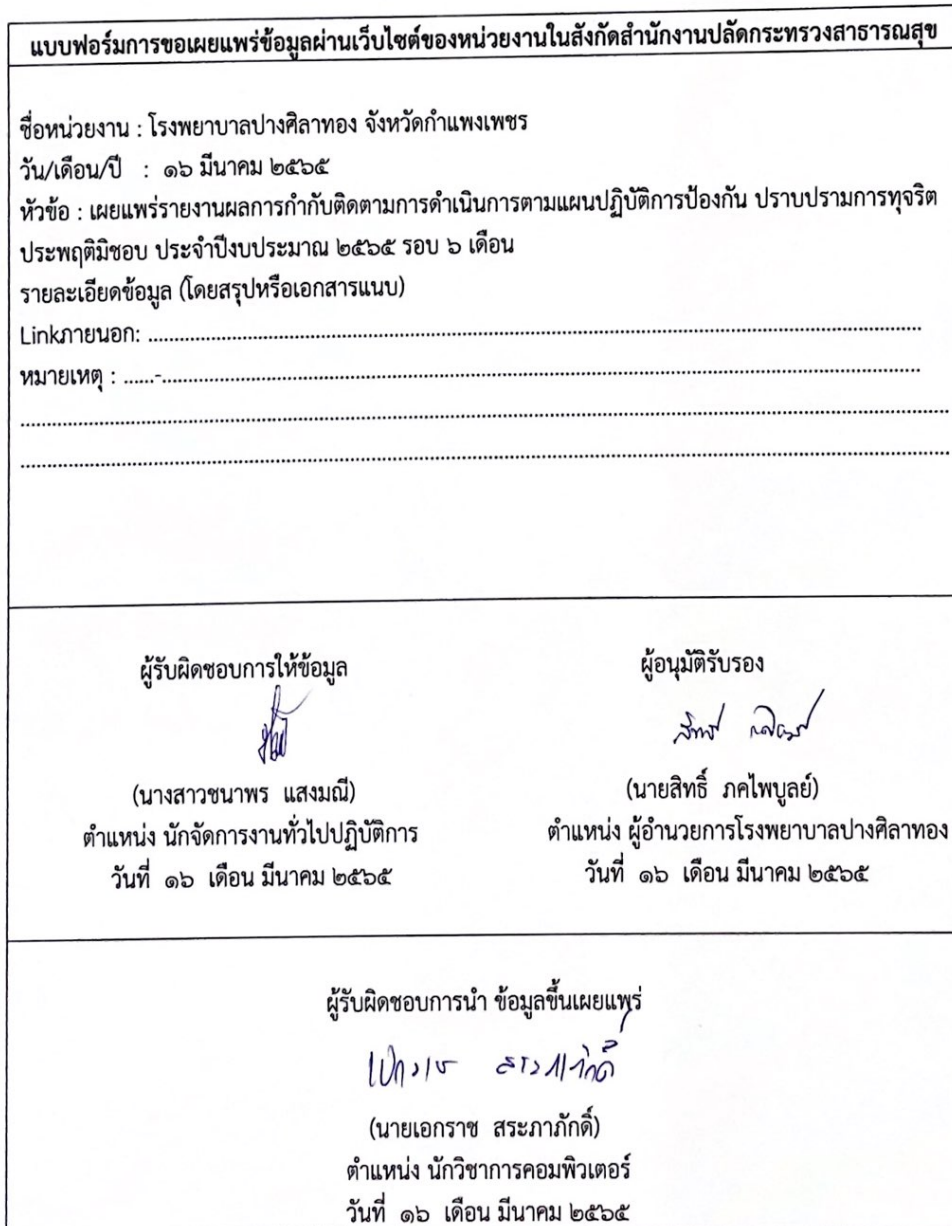 แบบฟอร์มการขอเผยแพร่ข้อมูลผ่านเว็บไซต์ของหน่วยงานในสังกัดสำนักงานปลัดกระทรวงสาธารณสุข
ชื่อหน่วยงาน : โรงพยาบาลปางศิลาทอง จังหวัดกำแพงเพชร
วัน/เดือน/ปี : ๑๖ มีนาคม ๒๕๖๕
หัวข้อ : เผยแพร่รายงานผลการกำกับติดตามการดำเนินการตามแผนปฏิบัติการป้องกัน ปราบปรามการทุจริต
ประพฤติมิชอบ ประจำปีงบประมาณ ๒๕๖๕ รอบ ๖ เดือน
รายละเอียดข้อมูล (โดยสรุปหรือเอกสารแนบ)
Linkภายนอก: ........................................................................
หมายเหตุ : ......-........................................................................
........................................................................
........................................................................
ผู้รับผิดชอบการให้ข้อมูล
(นางสาวชนาพร แสงมณี)
ตำแหน่ง นักจัดการงานทั่วไปปฏิบัติการ
วันที่ ๑๖ เดือน มีนาคม ๒๕๖๕
ผู้อนุมัติรับรอง
(นายสิทธิ์ ภคไพบูลย์)
ตำแหน่ง ผู้อำนวยการโรงพยาบาลปางศิลาทอง
วันที่ ๑๖ เดือน มีนาคม ๒๕๖๕
ผู้รับผิดชอบการนำ ข้อมูลขึ้นเผยแพร่
เอกราช สระภาภักดิ์
(นายเอกราช สระภาภักดิ์)
ตำแหน่ง นักวิชาการคอมพิวเตอร์
วันที่ ๑๖ เดือน มีนาคม ๒๕๖๕